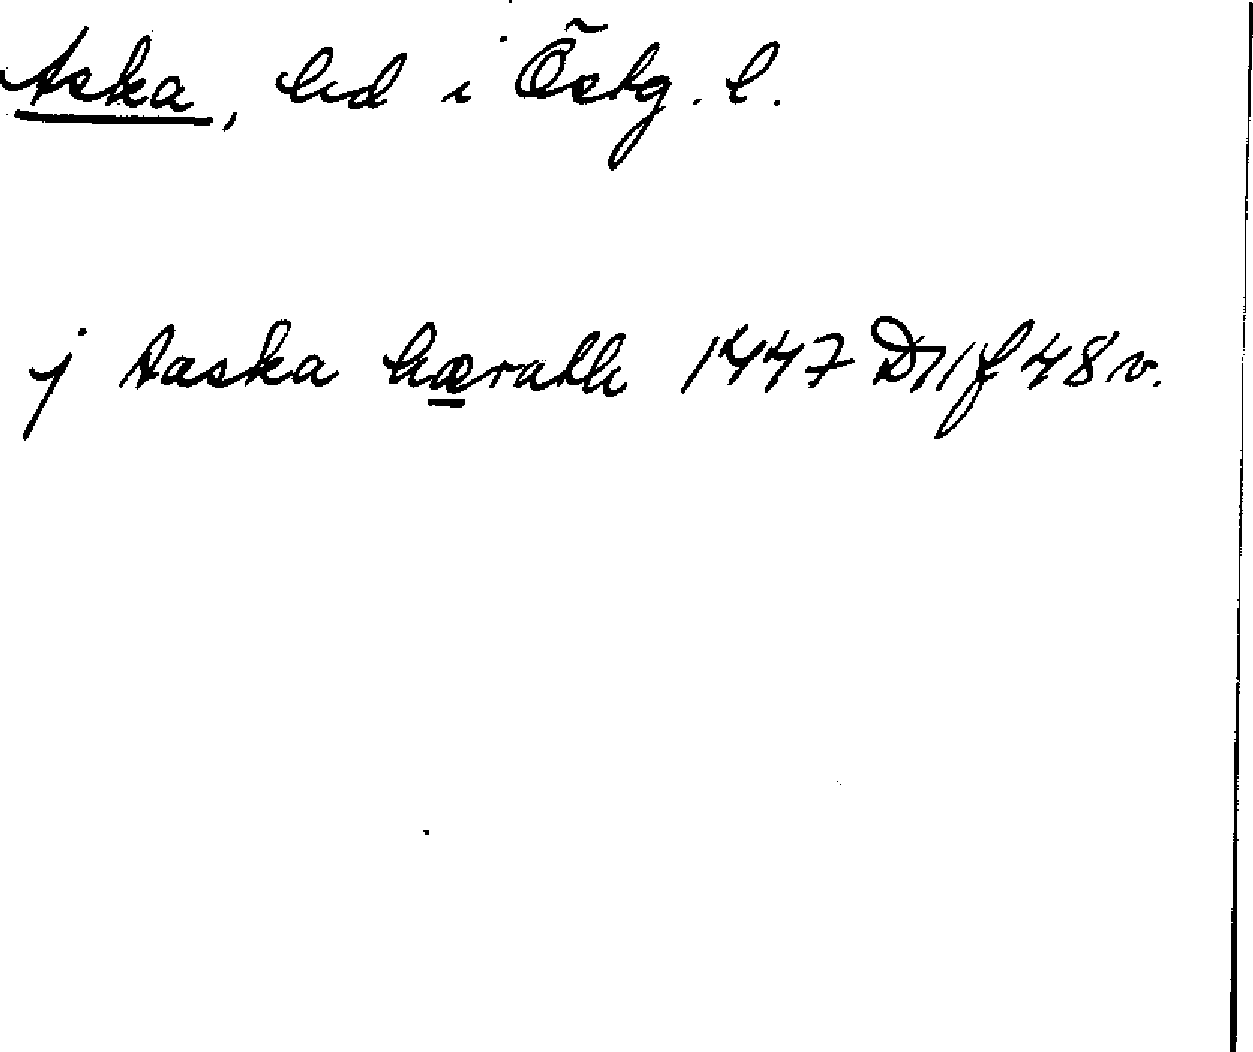 Aska, hd i Östg. l.
j Aaska hærath 1447 D11 f 48 v.